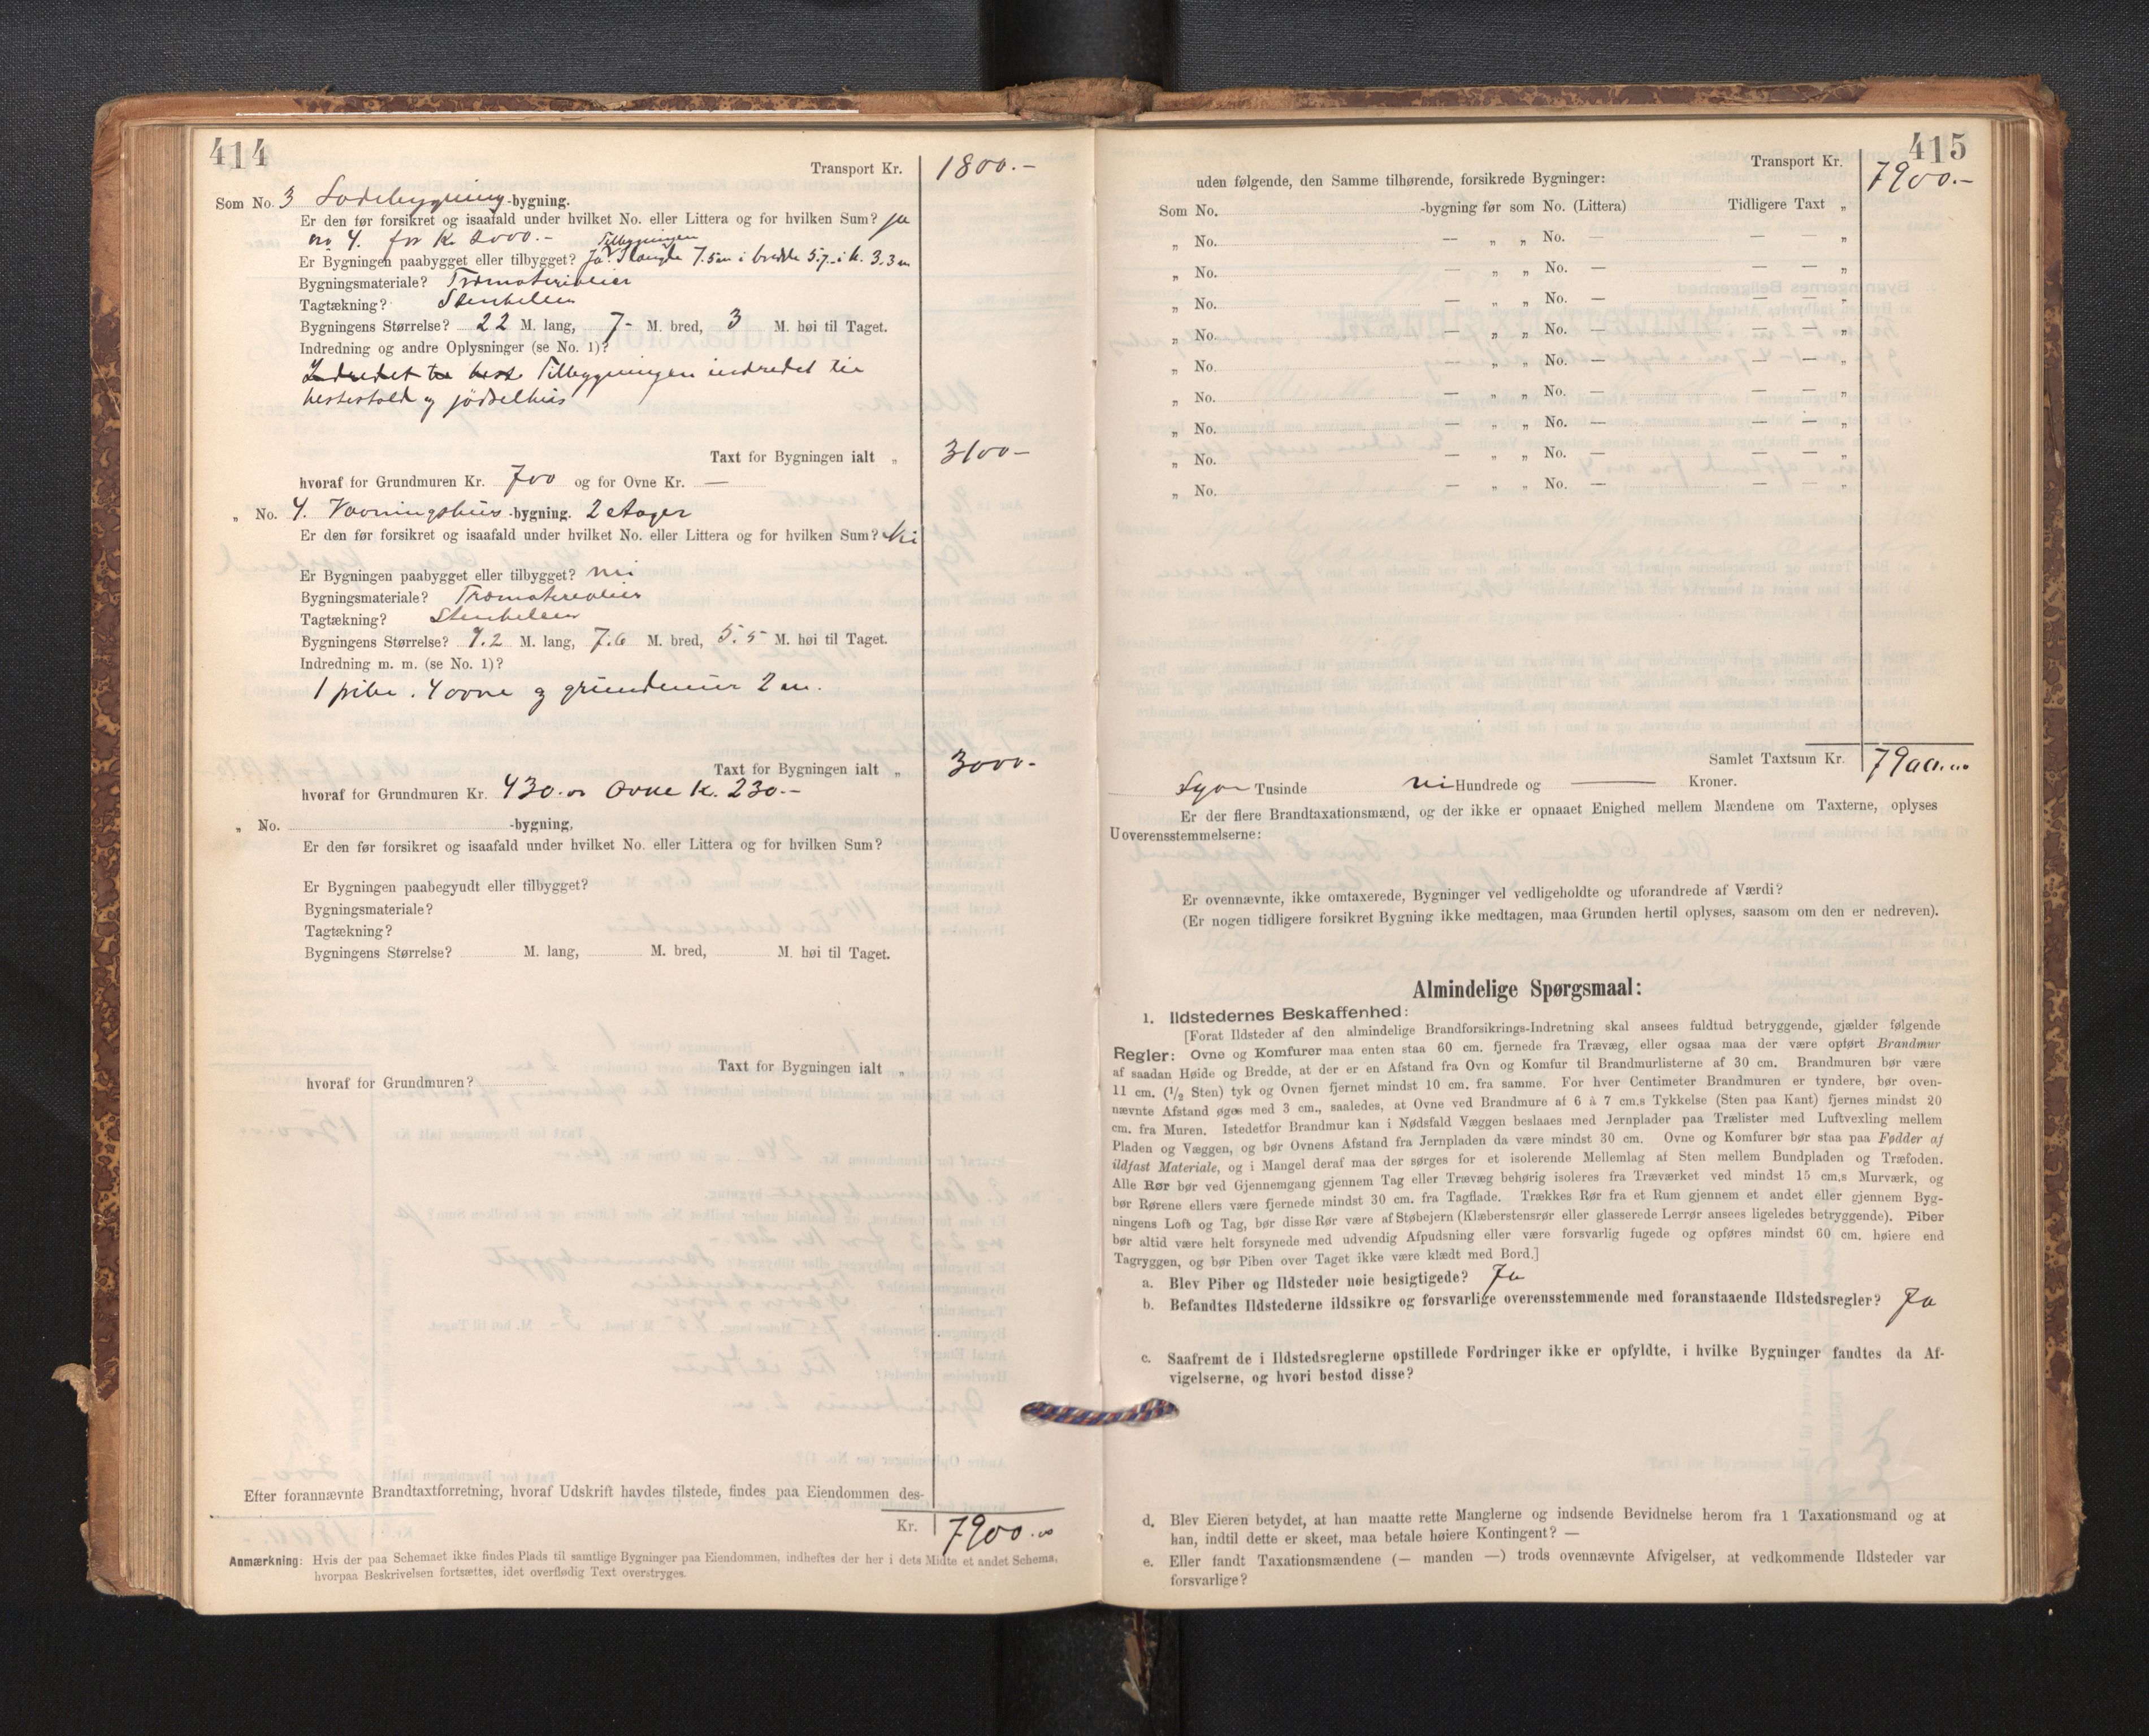 414
Transport Kr. 1800.-
Som No. 3 Lødebygning -bygning.
Er den før forsikret og isaafald under hvilket No. eller Littera og for hvilken Sum? ja
no 4. for Kr 2000.-
Tilbygningen
Er Bygningen paabygget eller tilbygget? Ja. I længde 7.5 m i bredde 5.7 i h. 3.3 m
Bygningsmateriale? Træmaterialier
Tagtækning? Stenheller
Bygningens Størrelse? 22 M. lang, 7- M. bred, 3 M. høi til Taget.
Indredning og andre Oplysninger (se No. 1)?
Indredet til hest Tilbygningen indredet til
hestestald og jødselhus
Taxt for Bygningen ialt „ 3100-
hvoraf for Grundmuren Kr. 700 og for Ovne Kr. —
„ No. 4. Vaaningshus -bygning. 2 etager
Er den før forsikret og isaafald under hvilket No. eller Littera og for hvilken Sum? Nei
Er Bygningen paabygget eller tilbygget? nei
Bygningsmateriale? Træmaterialier
Tagtækning? Stenheller
Bygningens Størrelse? 9.2 M. lang, 7.6 M. bred, 5.5 M. høi til Taget.
Indredning m. m. (se No. 1)?
1 pibe. 4 ovne og grundmur 2 m.
Taxt for Bygningen ialt „ 3000-
hvoraf for Grundmuren Kr. 430.00 Ovne Kr. 230.-
„ No. -bygning,
Er den før forsikret og isaafald under hvilket No. eller Littera og for hvilken Sum?
Er Bygningen paabegyndt eller tilbygget?
Bygningsmateriale?
Tagtækning?
Bygningens Størrelse? M. lang, M. bred, M. høi til Taget.
Taxt for Bygningen ialt „
hvoraf for Grundmuren?
Efter forannævnte Brandtaxtforretning, hvoraf Udskrift havdes tilstede, findes paa Eiendommen des-
Kr. 7900.00
Anmærkning: Hvis der paa Schemaet ikke findes Plads til samtlige Bygninger paa Eiendommen, indheftes der her i dets Midte et andet Schema,
hvorpaa Beskrivelsen fortsættes, idet overflødig Text overstryges.
415
Transport Kr. 7900.-
uden følgende, den Samme tilhørende, forsikrede Bygninger:
Som No. -bygning før som No. (Littera) Tidligere Taxt „
„ No. — „ „ No. — — — „
„ No. — „ „ No. — — — „
„ No. — „ „ No. — — — „
„ No. — „ „ No. — — — „
„ No. — „ „ No. — — — „
„ No. — „ „ No. — — — „
„ No. — „ „ No. — — — „
„ No. — „ „ No. — — — „
„ No. — „ „ No. — — — „
Samlet Taxtsum Kr. 7900.00
Syv Tusinde ni Hundrede og — Kroner.
Er der flere Brandtaxationsmænd, og der ikke er opnaaet Enighed mellem Mændene om Taxterne, oplyses
Uoverensstemmelserne:
Er ovennævnte, ikke omtaxerede, Bygninger vel vedligeholdte og uforandrede af Værdi?
(Er nogen tidligere forsikret Bygning ikke medtagen, maa Grunden hertil oplyses, saasom om den er nedreven).
Almindelige Spørgsmaal:
1. Ildstedernes Beskaffenhed:
[Forat Ildsteder af den almindelige Brandforsikrings-Indretning skal ansees fuldtud betryggende, gjælder følgende
Regler: Ovne og Komfurer maa enten staa 60 cm. fjernede fra Trævæg, eller ogsaa maa der være opført Brandmur
af saadan Høide og Bredde, at der er en Afstand fra Ovn og Komfur til Brandmurlisterne af 30 cm. Brandmuren bør være
11 cm. (1/2 Sten) tyk og Ovnen fjernet mindst 10 cm. fra samme. For hver Centimeter Brandmuren er tyndere, bør oven-
nævnte Afstand øges med 3 cm., saaledes, at Ovne ved Brandmure af 6 à 7 cm.s Tykkelse (Sten paa Kant) fjernes mindst 20
cm. fra Muren. Istedetfor Brandmur kan i Nødsfald Væggen beslaaes med Jernplader paa Trælister med Luftvexling mellem
Pladen og Væggen, og bør Ovnens Afstand fra Jernpladen da være mindst 30 cm. Ovne og Komfurer bør staa paa Fødder af
ildfast Materiale, og i Mangel deraf maa der sørges for et isolerende Mellemlag af Sten mellem Bundpladen og Træfoden.
Alle Rør bør ved Gjennemgang gjennem Tag eller Trævæg behørig isoleres fra Træværket ved mindst 15 cm.s Murværk, og
bør Rørene ellers være fjernede mindst 30 cm. fra Tagflade. Trækkes Rør fra et Rum gjennem et andet eller gjennem Byg-
ningens Loft og Tag, bør disse Rør være af Støbejern (Klæberstensrør eller glasserede Lerrør ansees ligeledes betryggende). Piber
bør altid være helt forsynede med udvendig Afpudsning eller være forsvarlig fugede og opføres mindst 60 cm. høiere end
Tagryggen, og bør Piben over Taget ikke være klædt med Bord.]
a. Blev Piber og Ildsteder nøie besigtigede? Ja
b. Befandtes Ildstederne ildssikre og forsvarlige overensstemmende med foranstaaende Ildstedsregler? Ja
c. Saafremt de i Ildstedsreglerne opstillede Fordringer ikke er opfyldte, i hvilke Bygninger fandtes da Af-
vigelserne, og hvori bestod disse?
d. Blev Eieren betydet, at han maatte rette Manglerne og indsende Bevidnelse herom fra 1 Taxationsmand og at
han, indtil dette er skeet, maa betale høiere Kontingent? —
e. Eller fandt Taxationsmændene (— manden —) trods ovennævnte Afvigelser, at vedkommende Ildsteder var
forsvarlige?